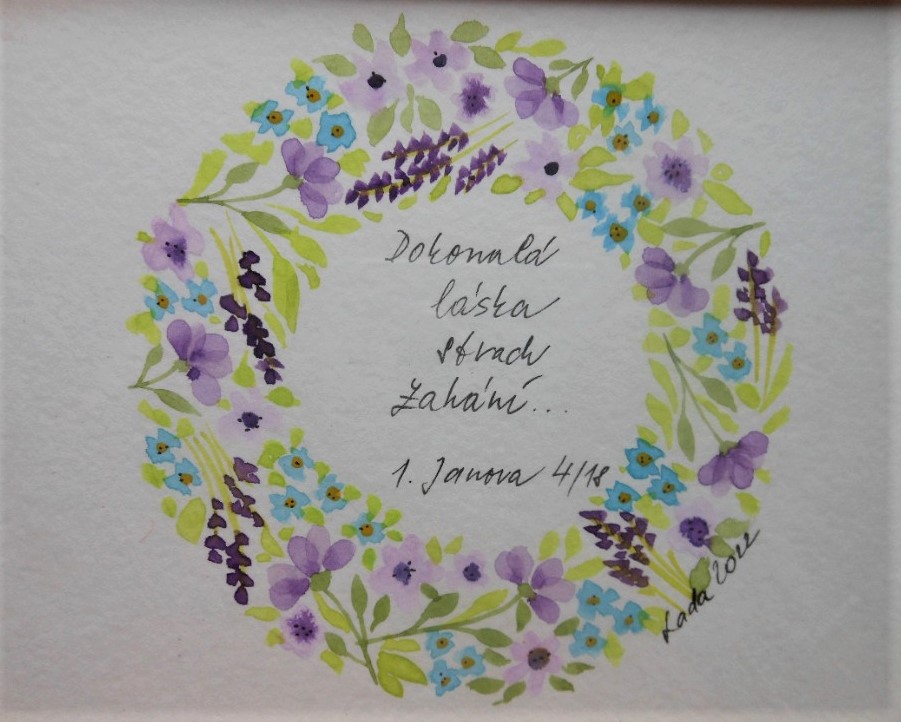 Dokonalá
láska
strach
zahání...
1. Janova 4/18
Lada 2022